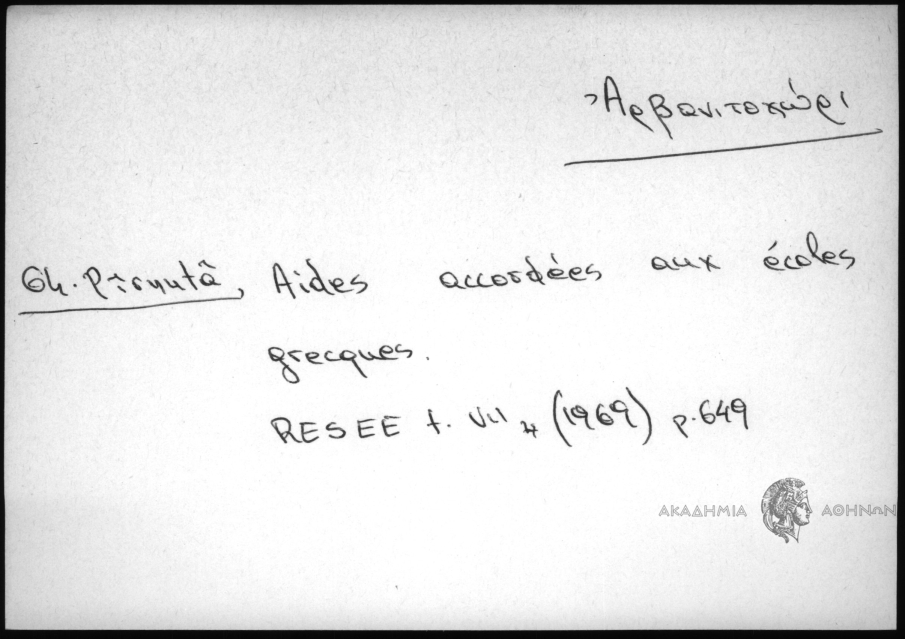 Ἀρβανιτοχώρι
Gh. Pîrnutâ, Aides accordées aux écoles
grecques.
RESEE t. VII 4 (1969) p. 649
ΑΚΑΔΗΜΙΑ ΑΘΗΝΩΝ